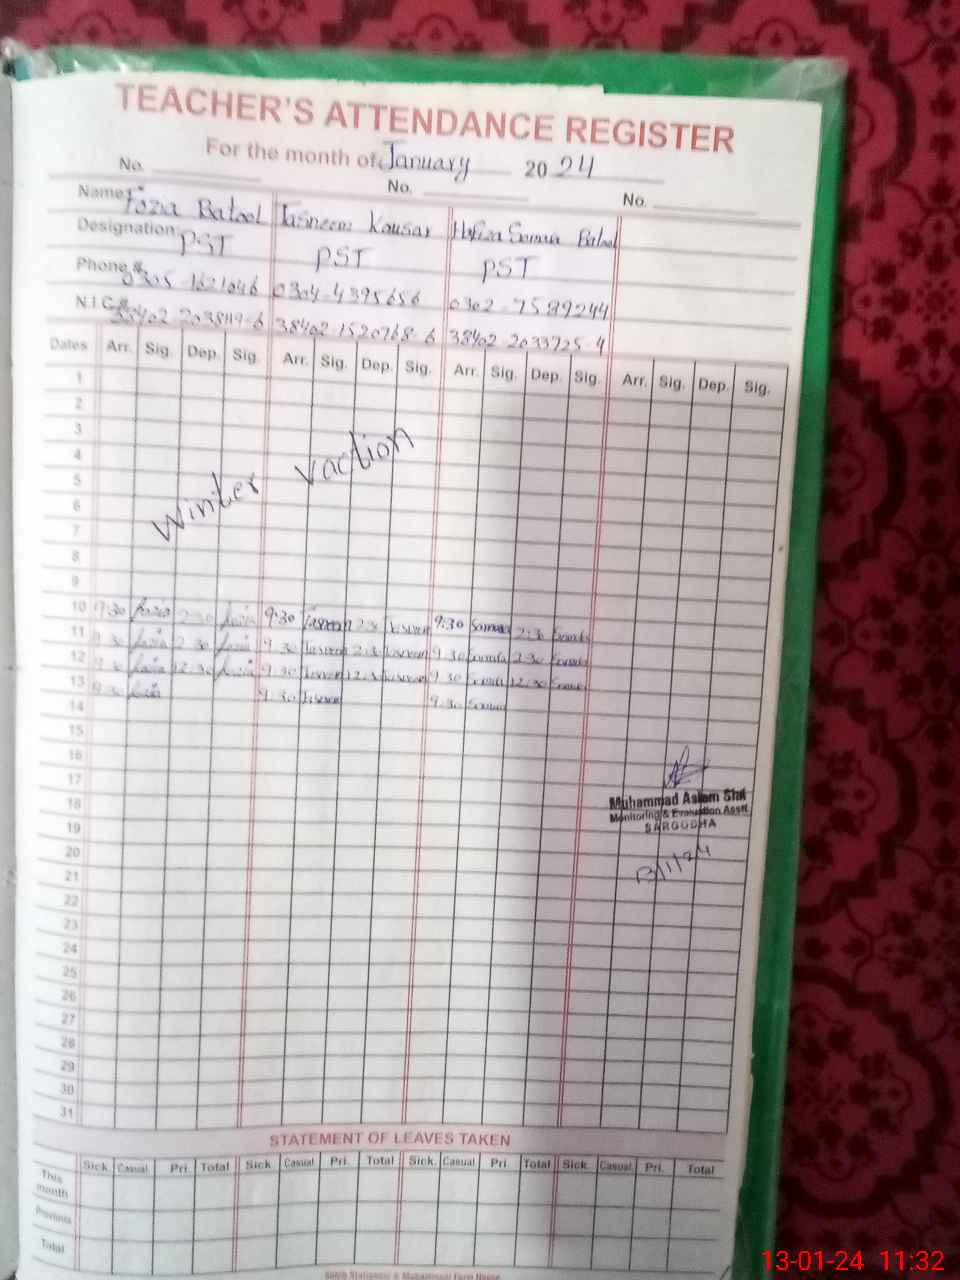 TEACHER'S ATTENDANCE REGISTER
For the month of January 2024
No. No. No.
Name: Fozia Batool Tasneem Kousar Hafiza Samra Batool
Designation: PST PST PST
Phone # 0305-1621046 0304-4395656 0302-7589244
N.I.C # 38402-2038119-6 38402-1520768-6 38402-2033725-4
Dates Arr. Sig. Dep. Sig. Arr. Sig. Dep. Sig. Arr. Sig. Dep. Sig. Arr. Sig. Dep. Sig.
1
2
3
4
Winter Vaction
5
6
7
8
9
10 9:30 Fozia 2:30 Fozia 9:30 Tasneem 2:30 Tasneem 9:30 Samra 2:30 Samra
11 9:30 Fozia 2:30 Fozia 9:30 Tasneem 2:30 Tasneem 9:30 Samra 2:30 Samra
12 9:30 Fozia 12:30 Fozia 9:30 Tasneem 12:30 Tasneem 9:30 Samra 12:30 Samra
13 9:30 Fozia 9:30 Tasneem 9:30 Samra
14
15
16
17
18 Muhammad Aslam
Monitoring & Evaluation Asstt.
19 SARGODHA
20
21 13/1/24
22
23
24
25
26
27
28
29
30
31
STATEMENT OF LEAVES TAKEN
Sick. Casual Pri. Total Sick. Casual Pri. Total Sick. Casual Pri. Total Sick. Casual Pri. Total
This month
Previous
Total
13-01-24 11:32